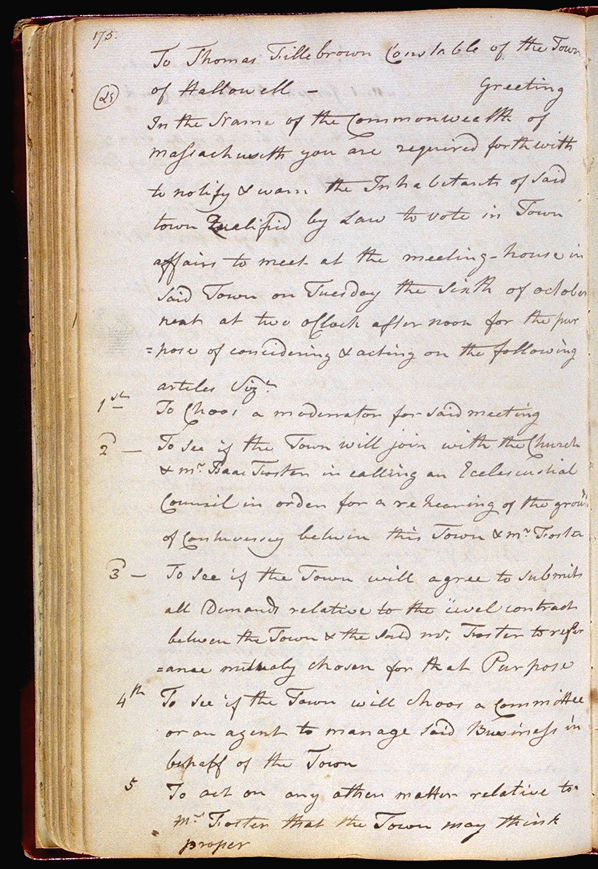 175.
To Thomas Fillebrown Constable of the Town
(25) of Hallowell – Greeting
In the Name of the Commonwealth of
Massachuseth you are required forthwith
to notify & warn the Inhabitants of Said
town Qualified by Law to vote in Town
affairs to meet at the meeting-house in
Said Town on Tuesday the Sixth of october
next at two oClock after noon for the pur
=pose of considering & acting on the following
artcles Viz.t
1st To Choos a moderrator for Said meeting
2 – To See if the Town will join with the Church
& mr. Isaac Foster in calling an Eclesciastial
Council in orden for a rehearing of the
of Contuversey betwen this Town & mr Foster
3 – To See if the Town will agree to Submitt
all Demands relative to the civel contract
between the Town & the Said mr. Foster to refer
=ance mutualy chosen for that Purpose
4th To See if the Town will choos a Committee
or an agent to manage Said Business in
behalf of the Town
5 To act on any other matter relative to
mr Foster that the Town may think
proper